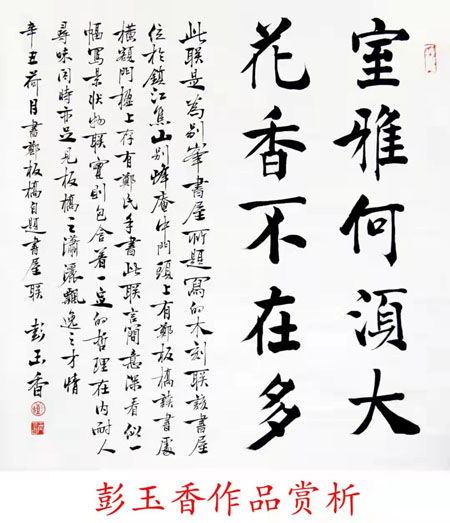 室雅何須大
花香不在多
此联是為别峯書屋所題寫的木刻联該書屋
位於鎮江焦山别峰庵中門頭上有鄭板橋讀書處
横額門楹上存有鄭氏手書此联言簡意深看似一
幅寫景狀物联實則包含着一定的哲理在内耐人
尋味同時亦足見板橋之瀟灑飄逸之才情
辛丑荷月書鄭板橋自題書屋联 彭玉香
彭玉香作品赏析